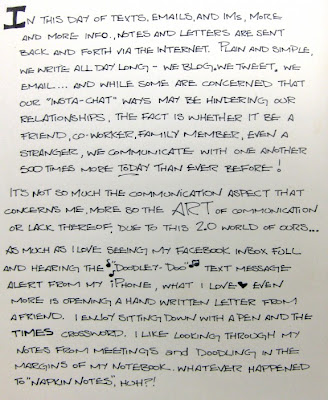 IN THIS DAY OF TEXTS, EMAILS, AND IMs, MORE
AND MORE INFO., NOTES AND LETTERS ARE SENT
BACK AND FORTH VIA THE INTERNET. PLAIN AND SIMPLE,
WE WRITE ALL DAY LONG - WE BLOG. WE TWEET. WE
EMAIL... AND WHILE SOME ARE CONCERNED THAT
OUR "INSTA-CHAT" WAYS MAY BE HINDERING OUR
RELATIONSHIPS, THE FACT IS WHETHER IT BE A
FRIEND, CO-WORKER, FAMILY MEMBER, EVEN A
STRANGER, WE COMMUNICATE WITH ONE ANOTHER
500 TIMES MORE TODAY THAN EVER BEFORE!
IT'S NOT SO MUCH THE COMMUNICATION ASPECT THAT
CONCERNS ME, MORE SO THE ART OF COMMUNICATION
OR LACK THEREOF, DUE TO THIS 2.0 WORLD OF OURS...
AS MUCH AS I LOVE SEEING MY FACEBOOK INBOX FULL
AND HEARING THE ♪"DOODLEY-DOO"♫ TEXT MESSAGE
ALERT FROM MY iPHONE, WHAT I LOVE ♥ EVEN
MORE IS OPENING A HAND WRITTEN LETTER FROM
A FRIEND. I ENJOY SITTING DOWN WITH A PEN AND THE
TIMES CROSSWORD. I LIKE LOOKING THROUGH MY
NOTES FROM MEETINGS and DOODLING IN THE
MARGINS OF MY NOTEBOOK. WHATEVER HAPPENED
TO "NAPKIN NOTES", HUH?!